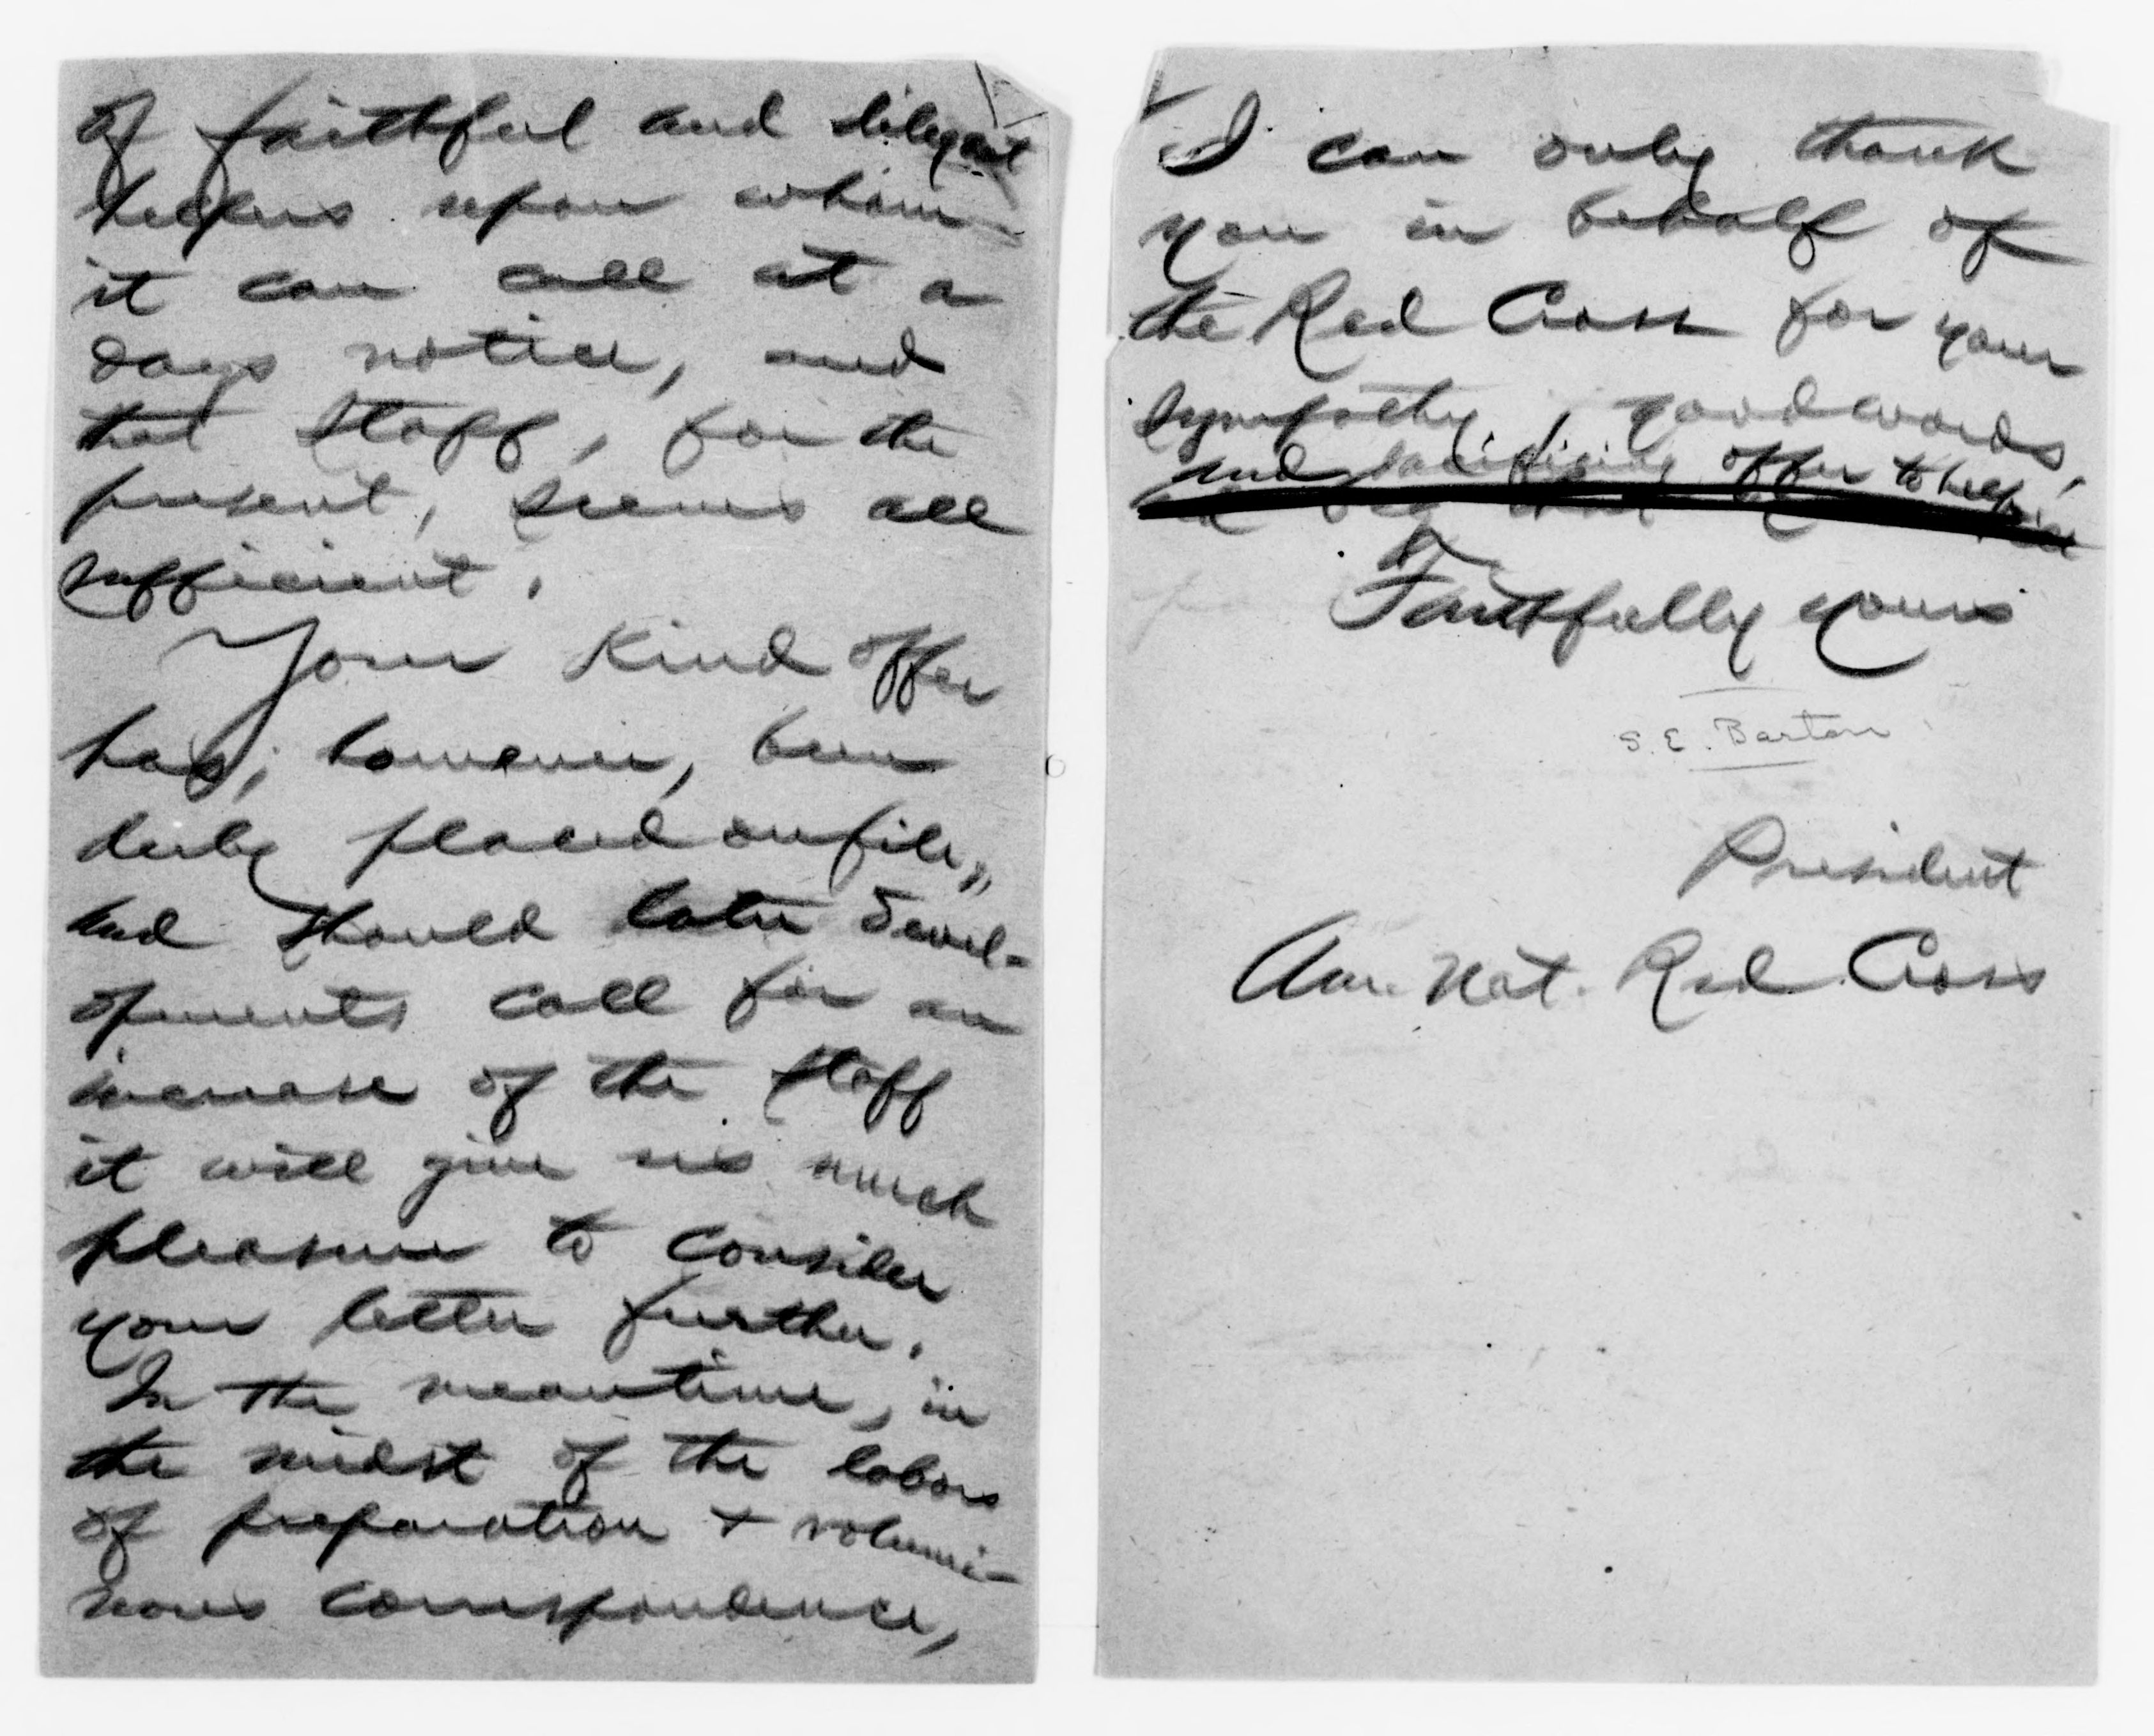 of faithful and diligent
helpers upon whom
it can call at a
days notice, and
that staff, for the
present, seems all
sufficient.
Your kind offer
has, however, been
duly placed on file,
and should later devel-
opments call for an
increase of the staff
it will give us much
pleasure to consider
your letter further.
In the meantime, in
the midst of the labors
of preparation + volumi-
nous correspondence,
I can only thank
you in behalf of
the Red Cross for your
sympathy, good words,
and sacrificing offer to help
Faithfully yours
S. E. Barton
President
Am. Nat. Red Cross